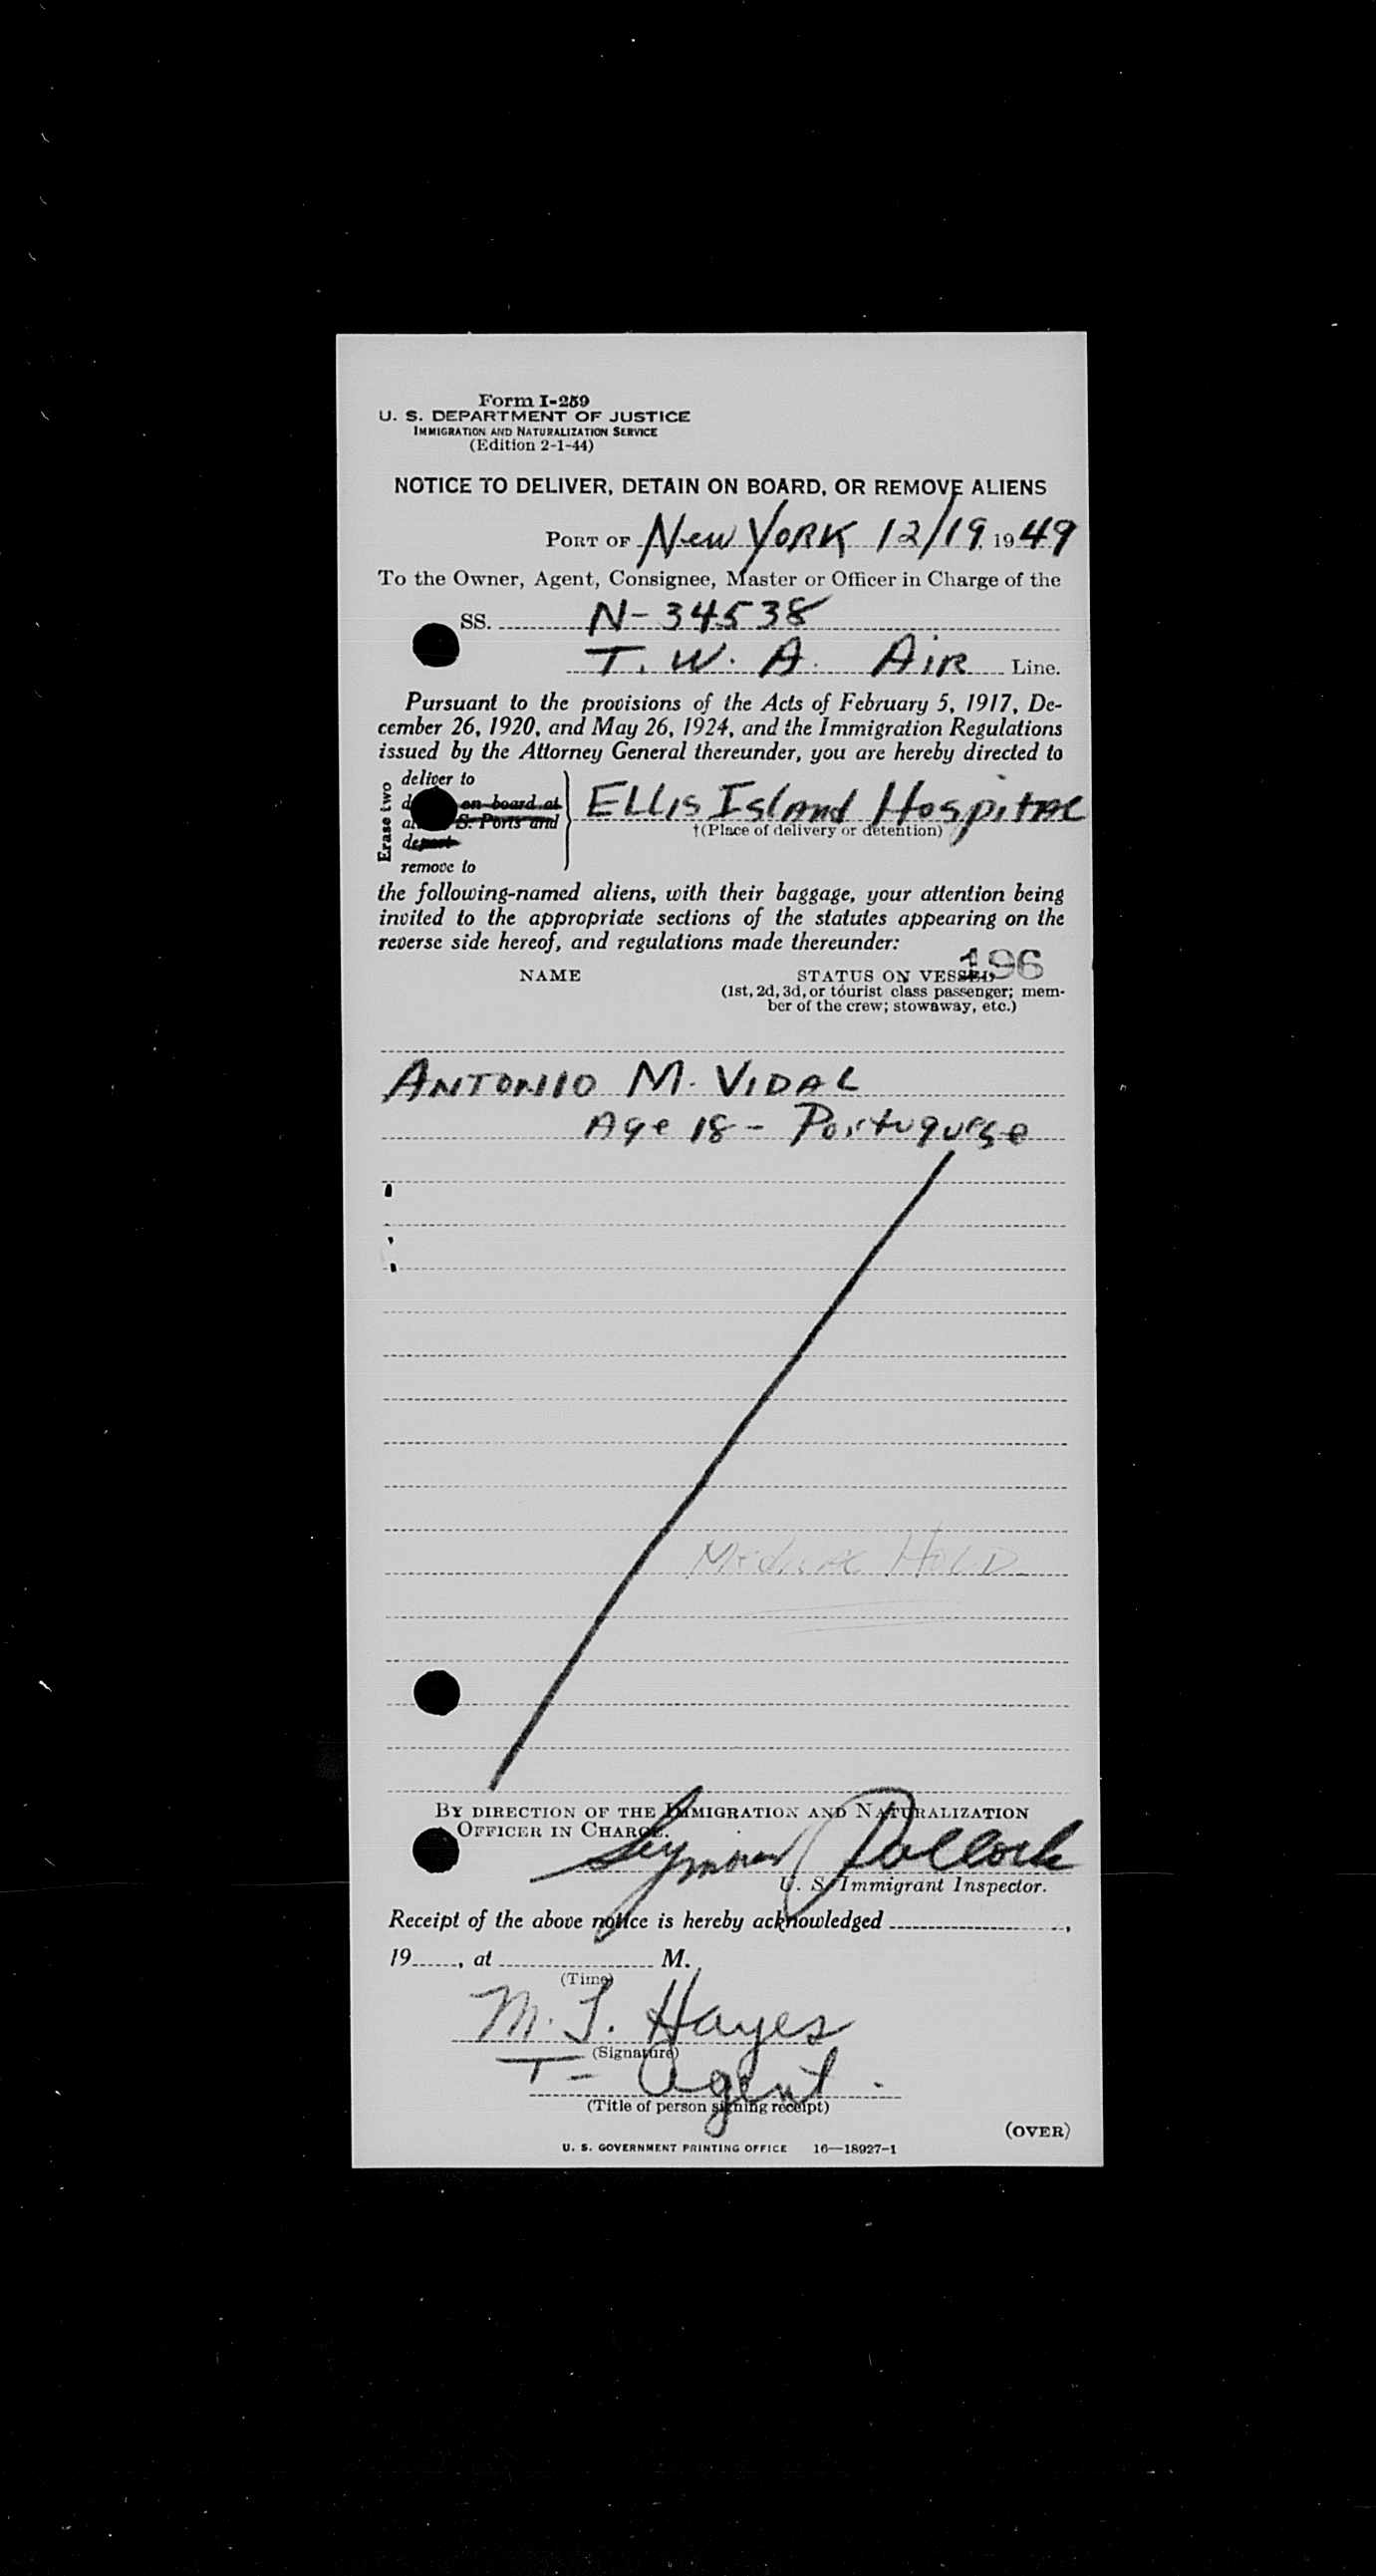 Form I-259
U. S. DEPARTMENT OF JUSTICE
IMMIGRATION AND NATURALIZATION SERVICE
(Edition 2-1-44)
NOTICE TO DELIVER, DETAIN ON BOARD, OR REMOVE ALIENS
PORT OF New YORK 12/19, 1949
To the Owner, Agent, Consignee, Master or Officer in Charge of the
SS. N-34538
T. W. A. AIR Line.
Pursuant to the provisions of the Acts of February 5, 1917, De-
cember 26, 1920, and May 26, 1924, and the Immigration Regulations
issued by the Attorney General thereunder, you are hereby directed to
Erase two
deliver to
on board at
S. Ports and
depart
remove to
ELLIS Island Hospital
†(Place of delivery or detention)
the following-named aliens, with their baggage, your attention being
invited to the appropriate sections of the statutes appearing on the
reverse side hereof, and regulations made thereunder:
196
NAME STATUS ON VESSEL
(1st, 2d, 3d, or tourist class passenger; mem-
ber of the crew; stowaway, etc.)
ANTONIO M. VIDAL
Age 18 - Portuguese
Medical HOLD
BY DIRECTION OF THE IMMIGRATION AND NATURALIZATION
OFFICER IN CHARGE.
Seymour Pollock
U. S. Immigrant Inspector.
Receipt of the above notice is hereby acknowledged ,
19 , at M.
(Time)
M. J. Hayes
(Signature)
T- Agent.
(Title of person signing receipt)
(OVER)
U. S. GOVERNMENT PRINTING OFFICE 16—18927-1